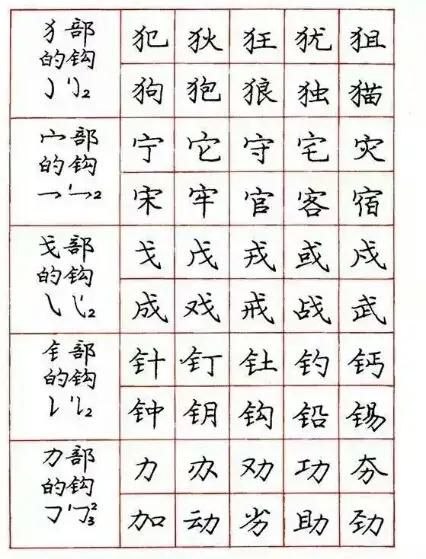 犭部
的钩
犯 狄 狂 犹 狙
狗 狍 狼 独 猫
宀部
的钩
宁 它 守 宅 灾
宋 牢 官 客 宿
戈部
的钩
戈 戊 戎 或 戍
成 戏 戒 战 武
钅部
的钩
针 钉 钍 钓 钙
钟 钥 钩 铅 锡
力部
的钩
力 办 劝 功 夯
加 动 劣 助 劲